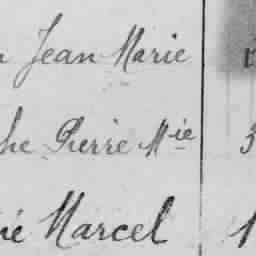 Jean Marie
Pierre Mie 3
Marcel 1